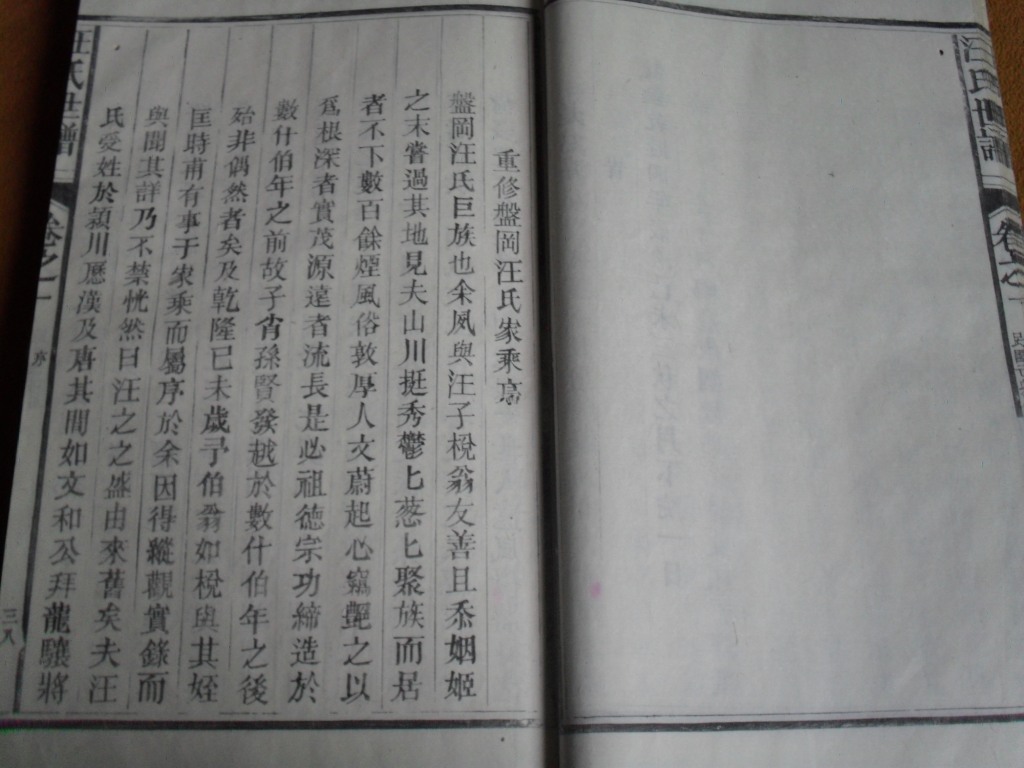 汪氏世譜
卷之一
重修盤岡汪氏家乘序
盤岡汪氏巨族也余夙與汪子梲翁友善且忝姻姬
之末嘗過其地見夫山川挺秀鬱匕葱匕聚族而居
者不下數百餘煙風俗敦厚人文蔚起心竊艷之以
爲根深者實茂源遠者流長是必祖德宗功締造於
數什伯年之前故子肖孫賢發越於數什伯年之後
殆非偶然者矣及乾隆己未歲予伯翁如梲與其姪
匡時甫有事于家乘而屬序於余因得縱觀實錄而
與聞其詳乃不禁恍然曰汪之之盛由來舊矣夫汪
氏爰姓於潁川歷漢及唐其間如文和公拜龍驤將
汪氏世譜
卷之一
序
三八